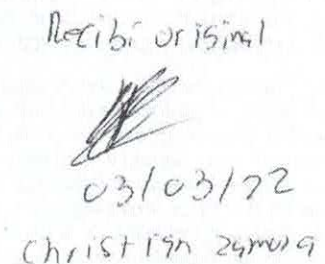 Recibi original
03/03/22
Christian Zamora